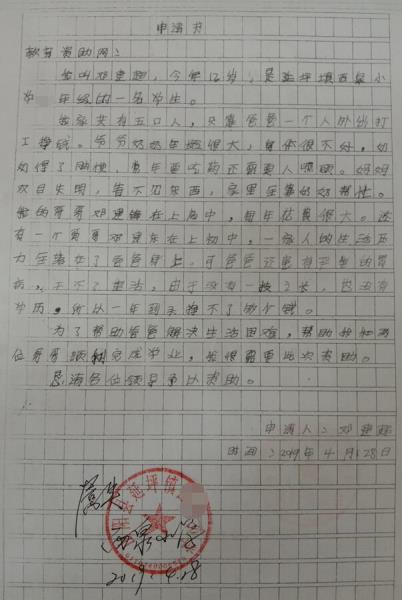 申请书
敬育资助网：
我叫邓建超，今年12岁，是延坪镇西泉小
学 年级的一名学生。
我家共有五口人，只靠爸爸一个人外出打
工挣钱。爷爷奶奶年纪很大，身体很不好。奶
奶得了脑梗，常年要吃药还需要人照顾。妈妈
双目失明，看不见东西，家里全靠奶奶帮忙。
我的哥哥邓建 在上高中，每年花费很大。还
有一个哥哥邓 东在上初中，一家人的生活压
力全落在了爸爸身上，可爸爸还患有 的胃
病，干不了重活。由于没有一技之长，也没有
学历，所以一年到头挣不了几个钱。
为了帮助爸爸解决生活困难，帮助我和两
位哥哥顺利完成学业，我很需要这次资助。
恳请各位领导予以资助。
申请人：邓建超
时间：2019年4月28日
属实
西泉小学
2019.4.28
县延坪镇